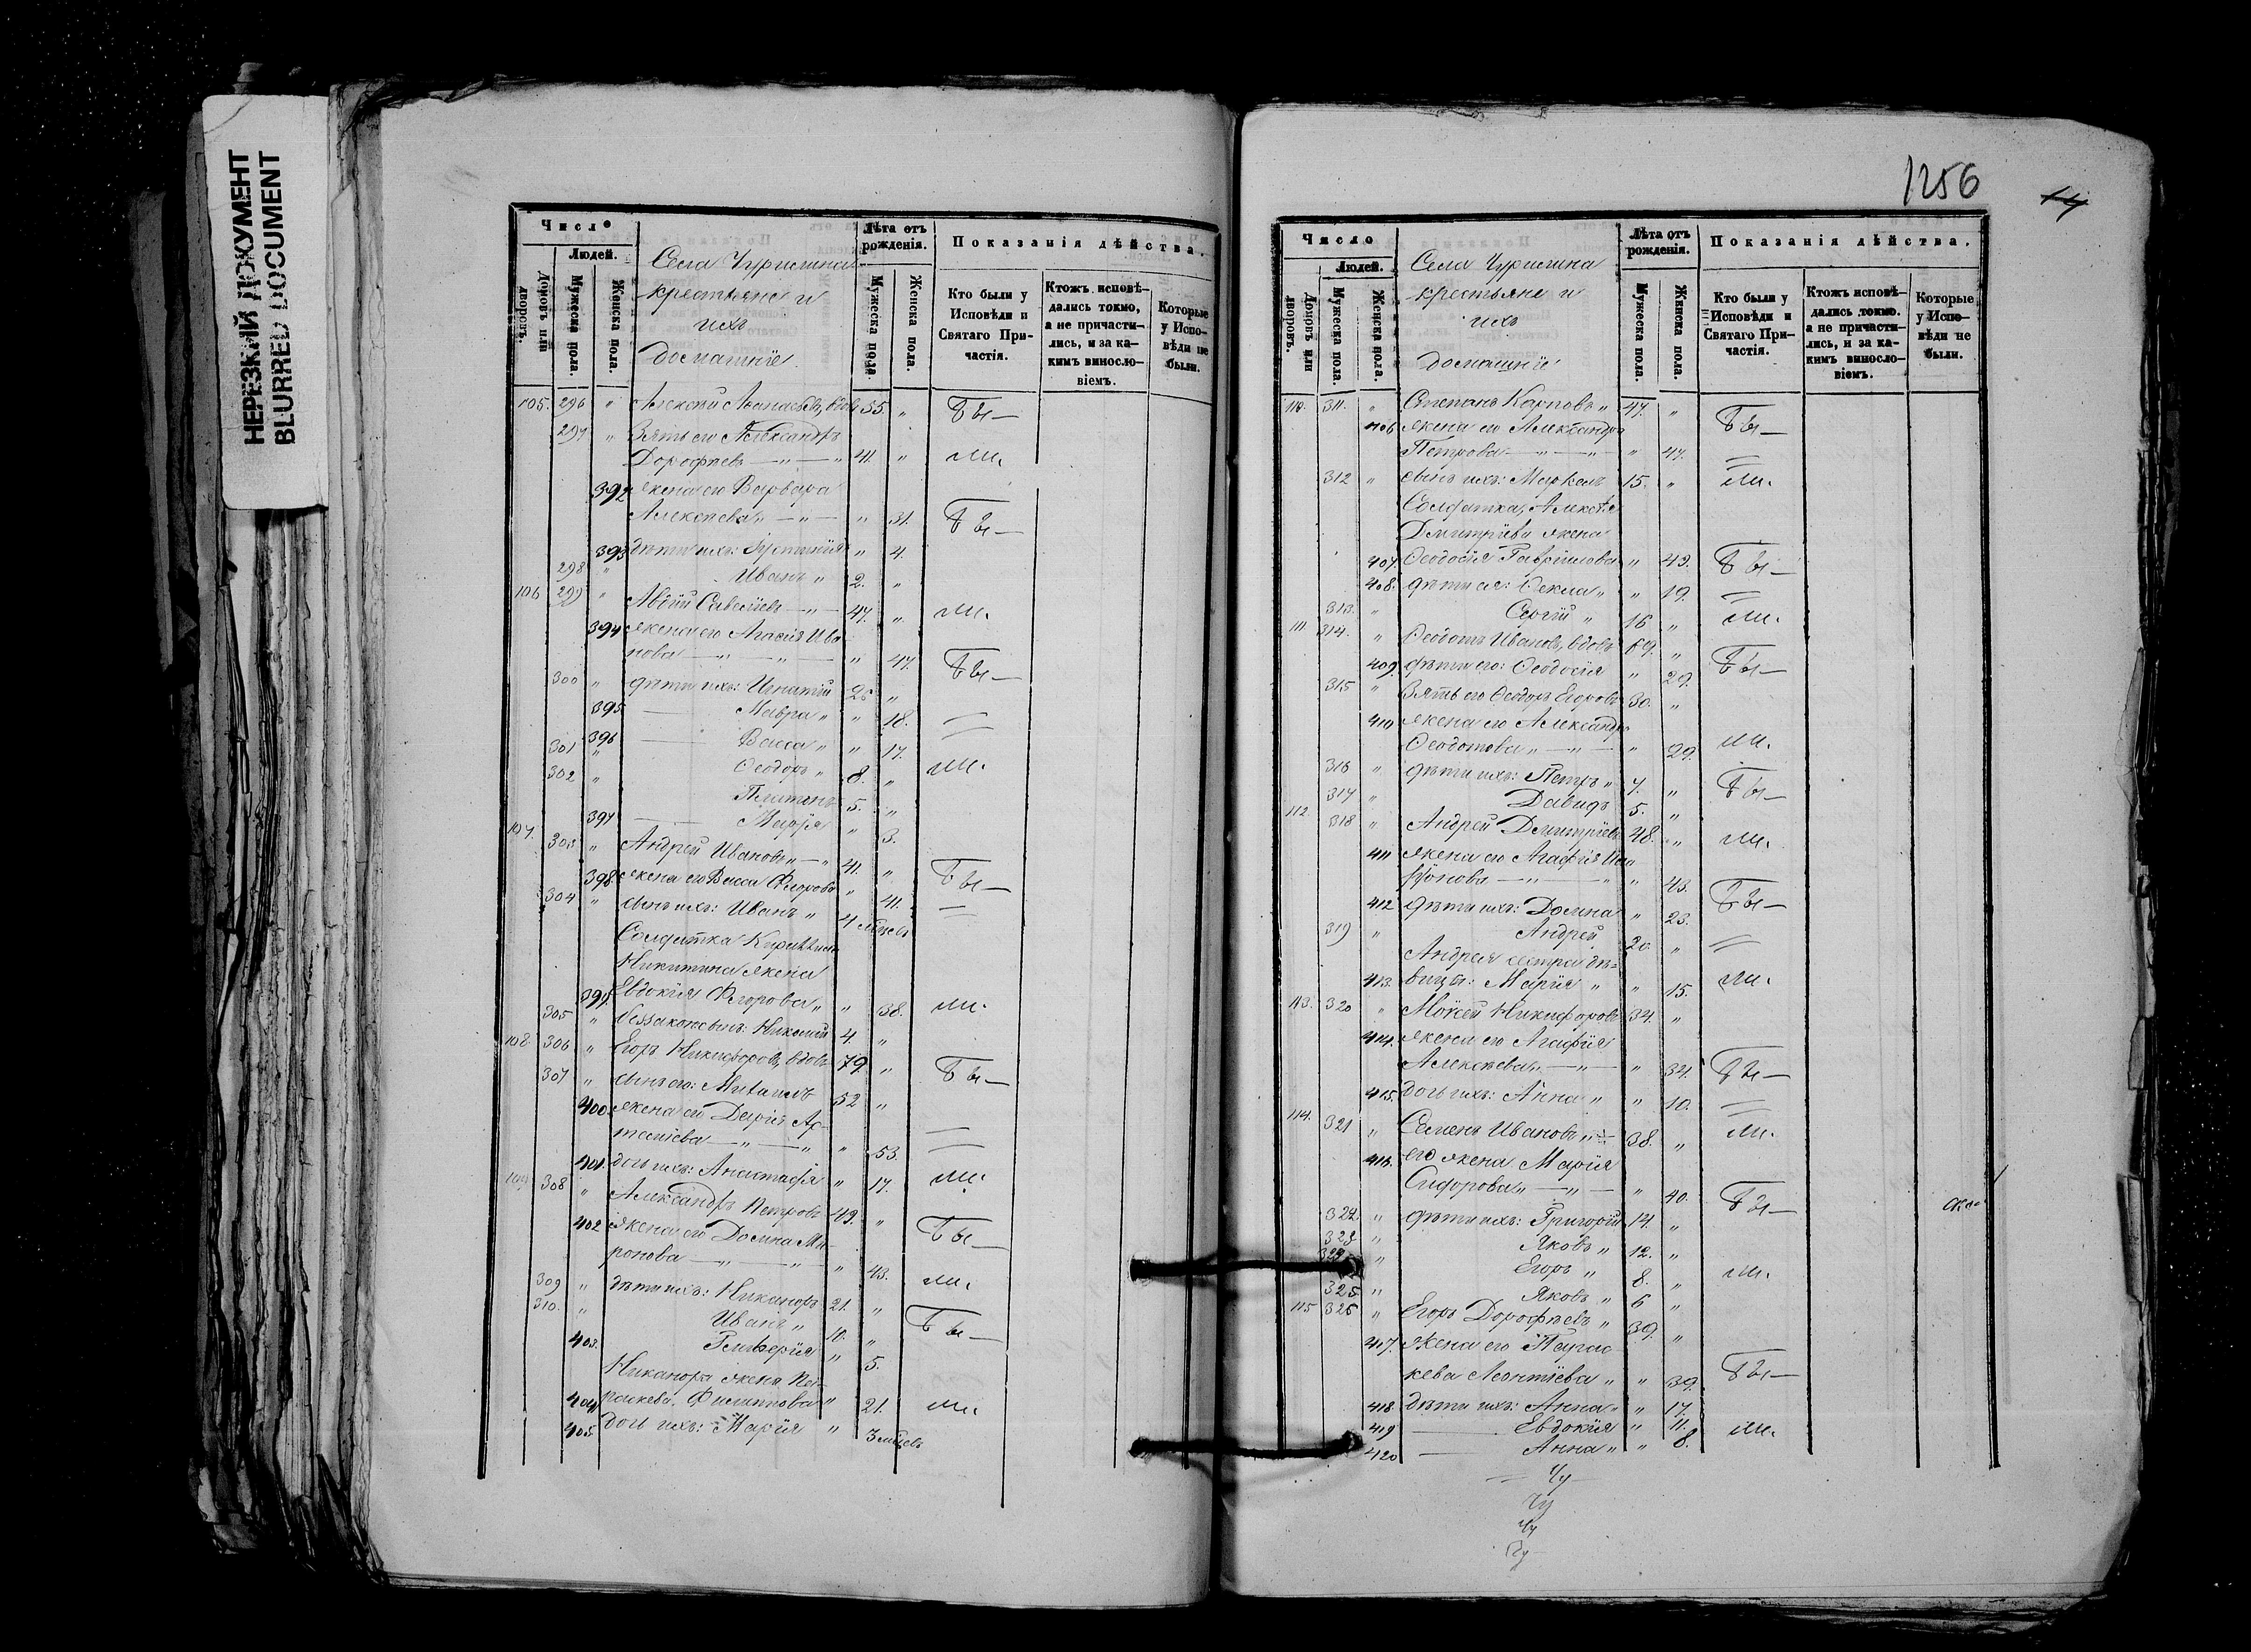 НЕРЕЗКИЙ ДОКУМЕНТ
BLURRED DOCUMENT
Число
Людей.
Домовъ или дворовъ.
Мужеска пола.
Женска пола.
Села Чурилина
крестьяне и
ихъ
домашніе
Лѣта отъ рожденія.
Мужеска пола.
Женска пола.
Показанія дѣйства.
Кто были у Исповѣди и Святаго Причастія.
Ктожъ исповѣдались токмо, а не причастились, и за какимъ винословіемъ.
Которые у Исповѣди не были.
105. 296 " Алексѣй Аѳанасьевъ, вдовъ 55. " Бы—
297 " Зять его Александръ
Дорофѣевъ — " — " 41. " ли.
392 жена его Варвара
Алексѣева " — " — " 31. Бы—
393 дѣти ихъ: Іустинія " 4.
298 " Иванъ " 2. "
106 299 " Авдій Савельевъ — " — 47. " ли.
394 жена его Агафія Ива
нова — " — " — " 47. Бы—
300 " дѣти ихъ: Игнатій 26 "
395 — Мавра " " 18. =
396 — Васса " " 17.
301 " Ѳеодоръ " 8. " ли.
302 " Платонъ 5. "
397 — Марія " 3.
107. 303 " Андрей Ивановъ " — " 41. "
398. жена его Васса Ѳедорова " 41. Бы—
304 " сынъ ихъ: Иванъ " 4 мѣсяцевъ =
Солдатка
Никитина жена
399 Евдокія Ѳедорова " " 38. ли.
305 " Николай 4. "
108. 306 " Егоръ Никифоровъ, вдовъ 79. " Бы—
307 " сынъ его: Михаилъ 52 "
400. жена его Дарія Ар-
темьева — " — " " 53. =
401. дочь ихъ: Анастасія " 17. ли.
109 308 " Александръ Петровъ 43. "
402 жена его Домна Ми- Бы—
ронова — " — " — " 43.
309 " дѣти ихъ: Никаноръ 21. " ли.
310. " Иванъ " 10. " Бы—
403. Гликерія " 5.
Никанора жена Па-
404 раскева Филиппова " 21. ли.
405 дочь ихъ: Марія " 3 мѣсяцевъ
1256
14
Число
Людей.
Домовъ или дворовъ.
Мужеска пола.
Женска пола.
Села Чурилина
крестьяне и
ихъ
домашніе
Лѣта отъ рожденія.
Мужеска пола.
Женска пола.
Показанія дѣйства.
Кто были у Исповѣди и Святаго Причастія.
Ктожъ исповѣдались токмо. а не причастились, и за какимъ винословіемъ.
Которые у Исповѣди не были.
110. 311. " Степанъ Карповъ " 47. "
406 жена его Александра Бы—
Петрова — " — " — " " 47. =
312 " сынъ ихъ: Маркелъ 15. " ли.
Солдатка, Алексѣя
Дмитріева жена
407. Ѳеодосія Гавриилова " " 43. Бы—
408. дѣти ея: Ѳекла " " 19. =
313. " Сергій " 16 " ли.
111 314. " Ѳеодотъ Ивановъ, вдовъ 69. "
409. дѣти его: Ѳеодосія " 29. Бы—
315 " Зять его Ѳеодоръ Егоровъ 30. "
410 жена его Александра
Ѳеодотова " — " — " 29. ли.
316 " дѣти ихъ: Петръ " 7. "
317 " Давидъ 5. " Бы—
112 318 " Андрей Дмитріевъ 48. " ли.
411 жена его Агафія
— " — " " 43.
412 дѣти ихъ: Домна " 23. Бы—
319 " Андрей 20. " =
Андрея сестра дѣ-
413. вица: Марія " " 15. ли.
113. 320 " Моѵсей Никифоровъ 34. "
414. жена его Агафія
Алексѣева " — " — " 34. Бы—
415. дочь ихъ: Анна " " 10. =
114. 321 " Семенъ Ивановъ " — 38. " ли.
416. его жена Марія
Сидорова " — " — " 40. Бы—
322. " дѣти ихъ: Григорій 14. "
323 " Яковъ " 12. "
324 " Егоръ " 8. " ли.
325. " Яковъ " 6 "
115 326 " Егоръ Дорофѣевъ " 39. "
417. жена его Парас
кева Леонтіева " " 39. Бы—
418 дѣти ихъ: Анна " " 17.
419 — Евдокія " 11. ли.
420 — Анна " " 8.
Чу
Чу
Чу
Чу